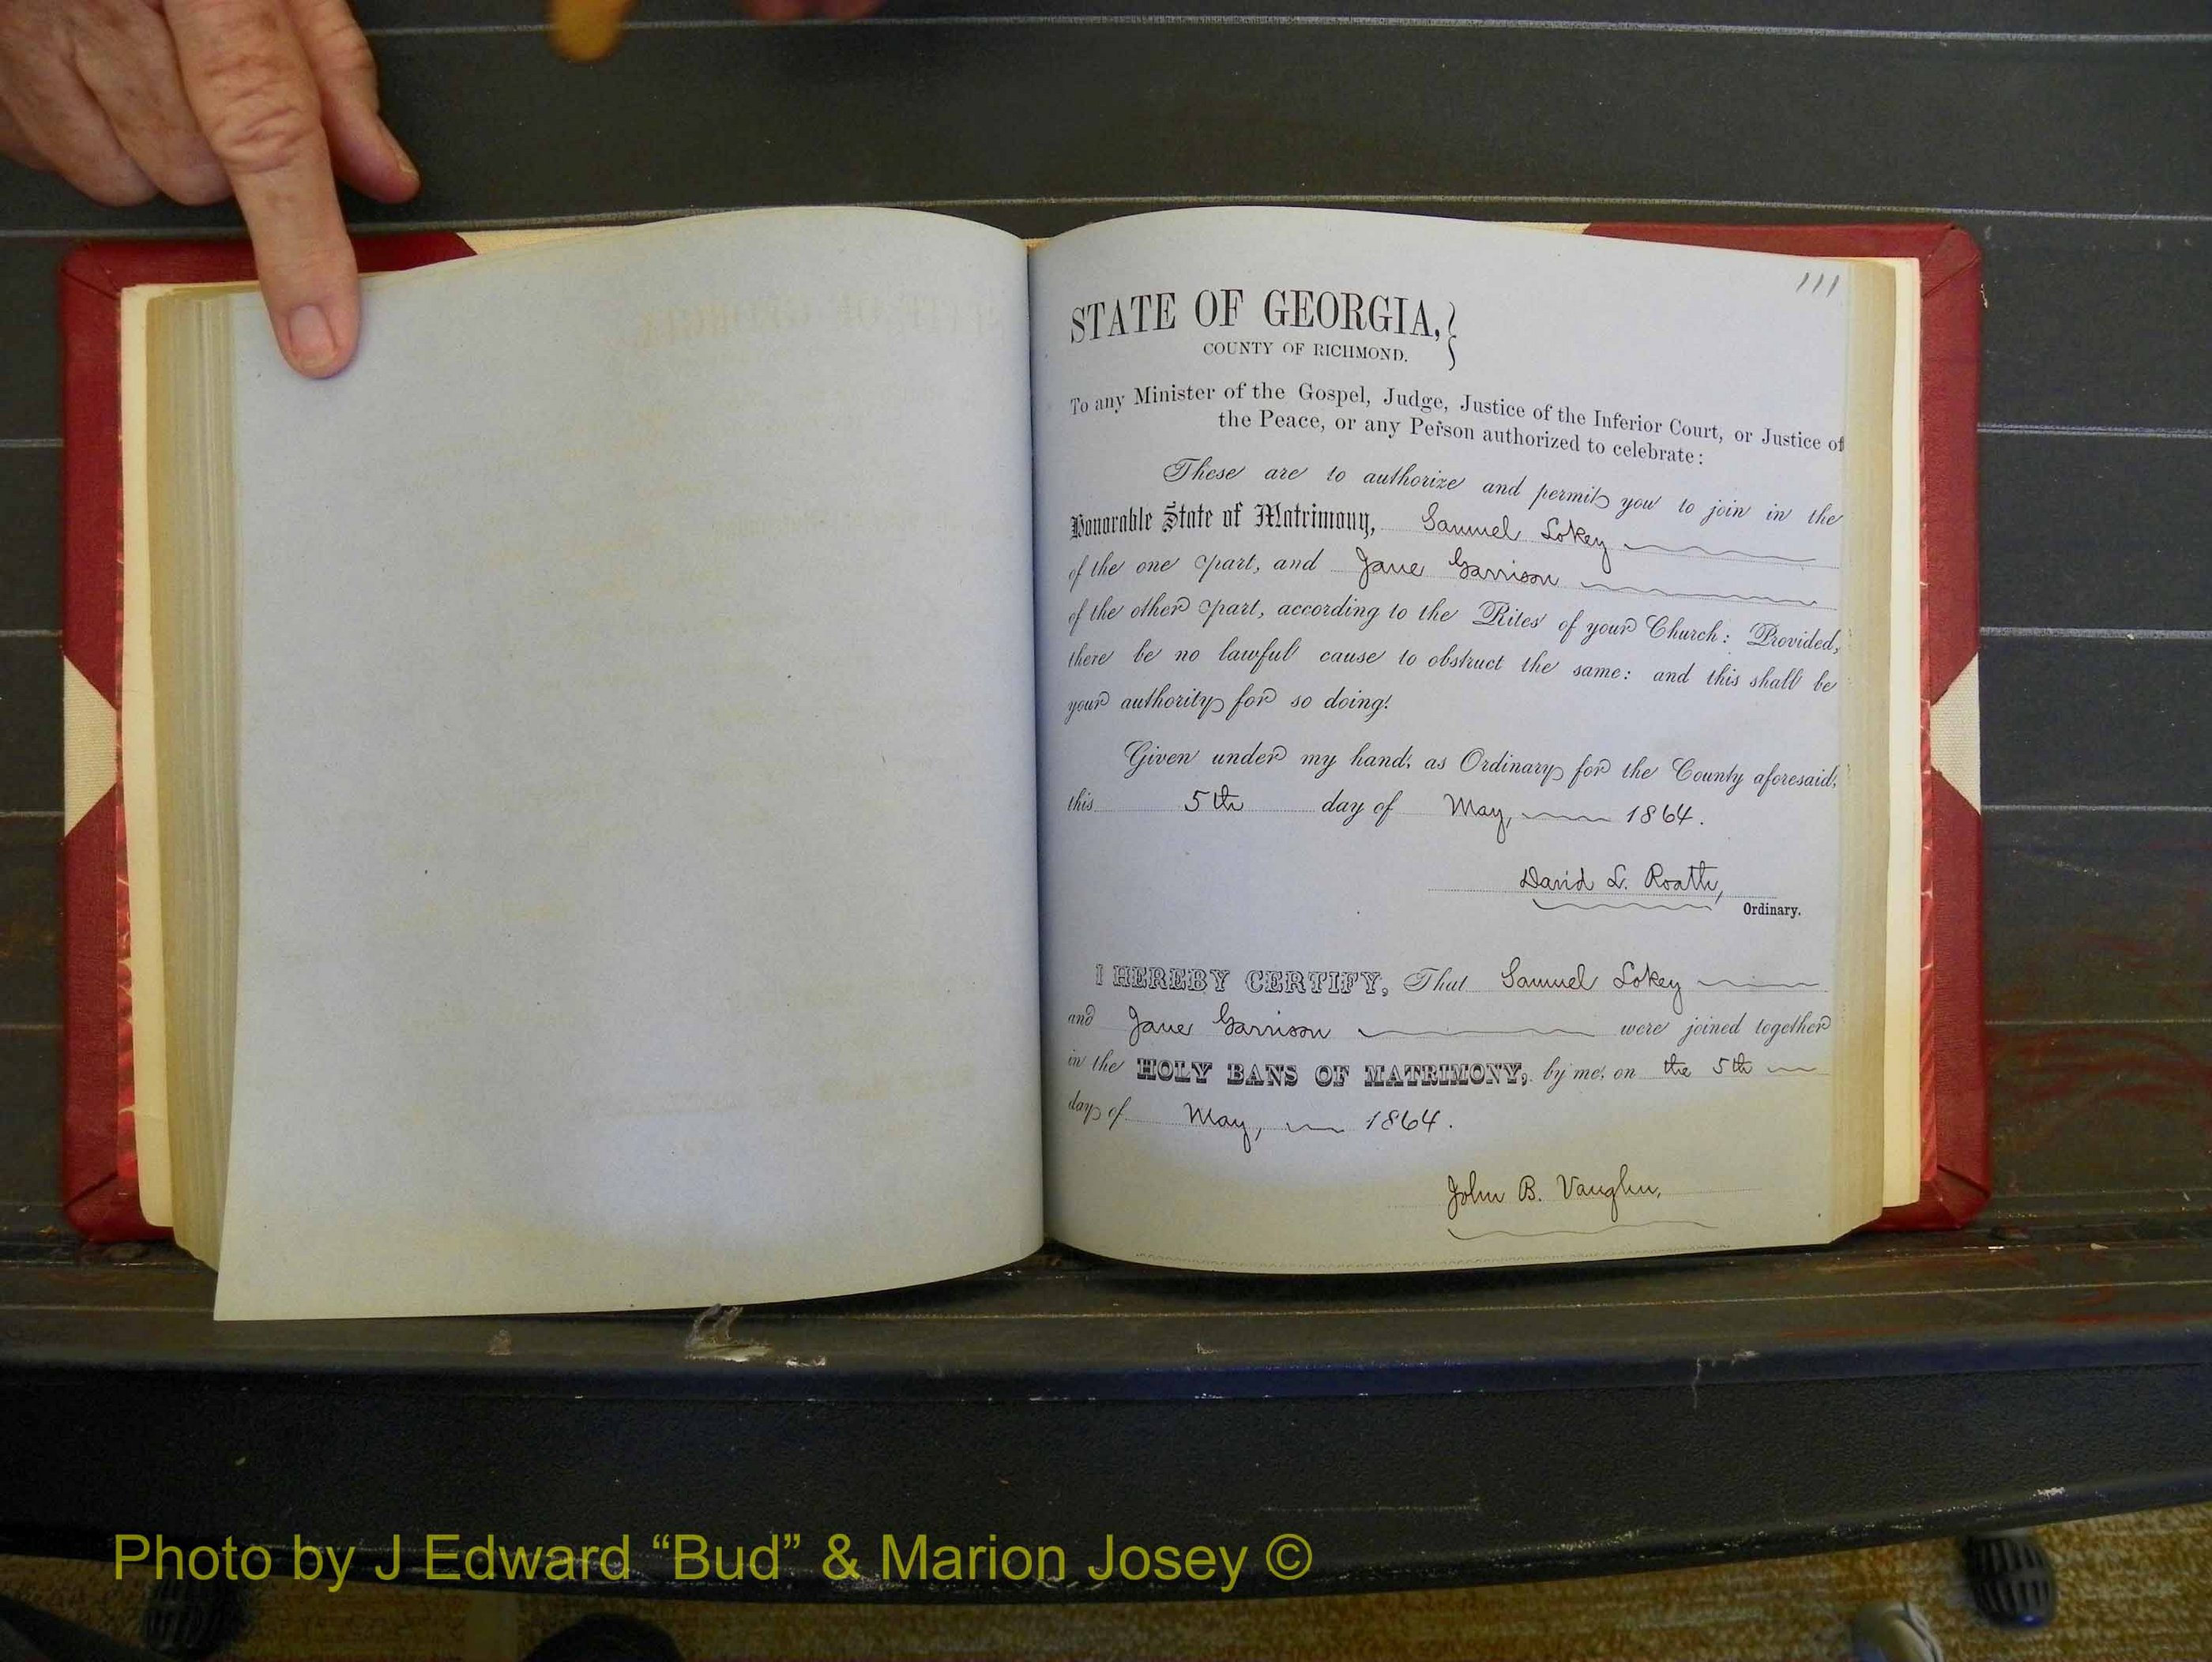 111
STATE OF GEORGIA,
COUNTY OF RICHMOND.
To any Minister of the Gospel, Judge, Justice of the Inferior Court, or Justice of
the Peace, or any Person authorized to celebrate:
These are to authorize and permit you to join in the
Honorable State of Matrimony, Samuel Lokey
of the one part, and Jane Garrison
of the other part, according to the Rites of your Church: Provided,
there be no lawful cause to obstruct the same: and this shall be
your authority for so doing.
Given under my hand, as Ordinary for the County aforesaid,
this 5th day of May, 1864.
David L. Roath,
Ordinary.
I HEREBY CERTIFY, That Samuel Lokey
and Jane Garrison were joined together
in the HOLY BANS OF MATRIMONY, by me, on the 5th
day of May, 1864.
John B. Vaughn,
Photo by J Edward “Bud” & Marion Josey ©